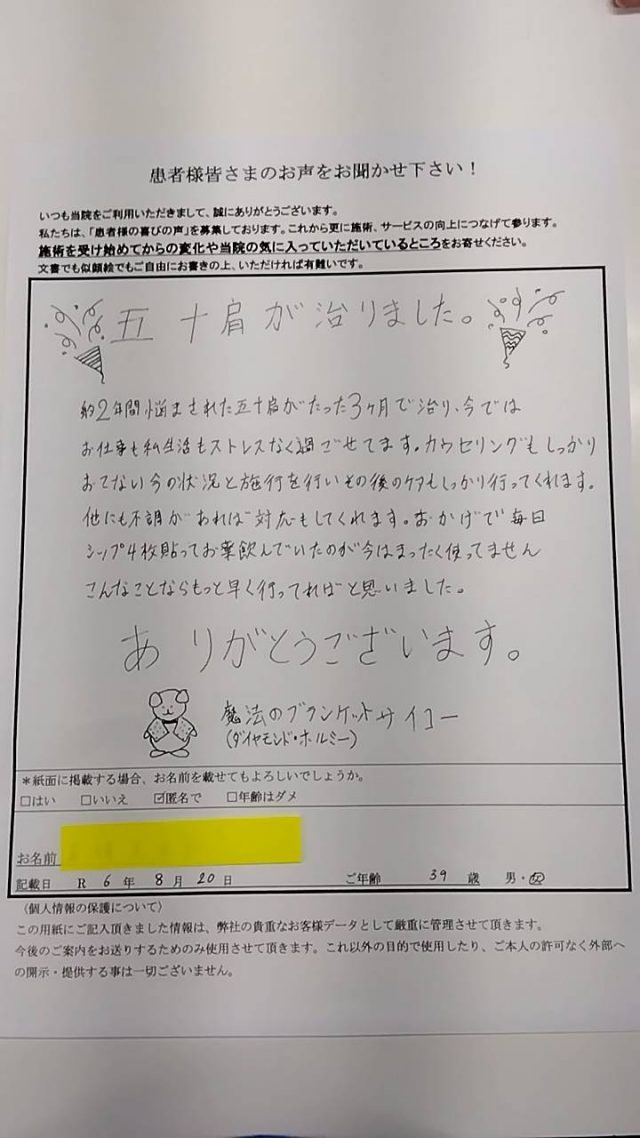 患者様皆さまのお声をお聞かせ下さい！
いつも当院をご利用いただきまして、誠にありがとうございます。
私たちは、「患者様の喜びの声」を募集しております。これから更に施術、サービスの向上につなげて参ります。
施術を受け始めてからの変化や当院の気に入っていただいているところをお寄せください。
文書でも似顔絵でもご自由にお書きの上、いただければ有難いです。
五十肩が治りました。
約2年間悩まされた五十肩がたった3ヶ月で治り、今では
お仕事も私生活もストレスなく過ごせてます。カウセリングもしっかり
おこない今の状況と施行を行いその後のケアもしっかり行ってくれます。
他にも不調があれば対応もしてくれます。おかげで毎日
シップ4枚貼ってお薬飲んでいたのが今はまったく使ってません
こんなことならもっと早く行ってればと思いました。
ありがとうございます。
魔法のブランケットサイコー
(ダイヤモンド・ホルミー)
＊紙面に掲載する場合、お名前を載せてもよろしいでしょうか。
□はい □いいえ ☑匿名で □年齢はダメ
お名前
記載日 R 6 年 8 月 20 日 ご年齢 39 歳 男・女
〈個人情報の保護について〉
この用紙にご記入頂きました情報は、弊社の貴重なお客様データとして厳重に管理させて頂きます。
今後のご案内をお送りするためのみ使用させて頂きます。これ以外の目的で使用したり、ご本人の許可なく外部へ
の開示・提供する事は一切ございません。